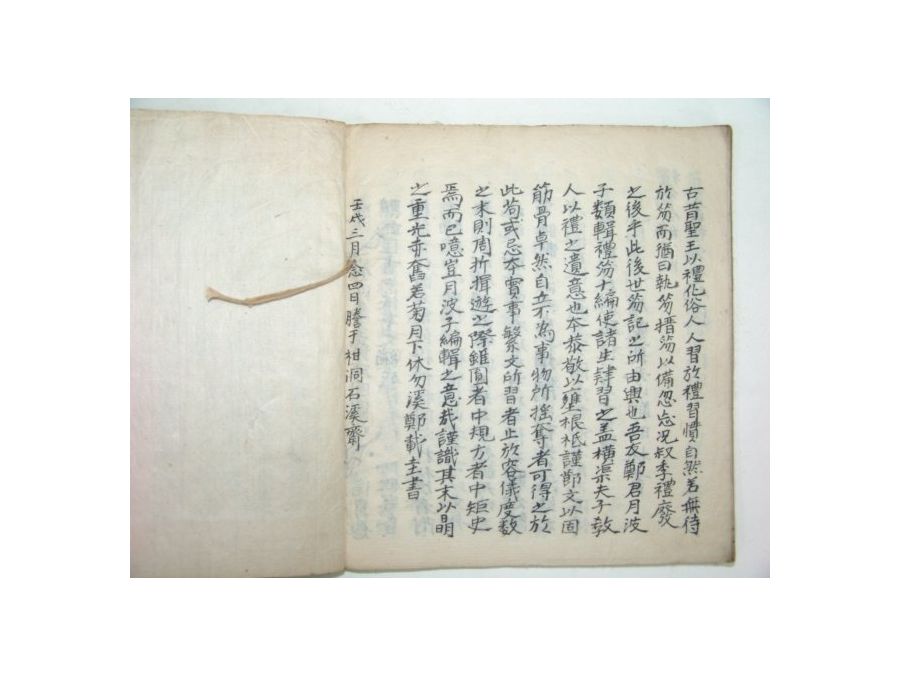 古昔聖王以禮化俗人人習於禮習慣自然若無待
於笏而猶曰執笏搢笏以備忽忘況叔季禮廢
之後乎此後世笏記之所由興也吾友鄭君月波
子類輯禮笏十編使諸生肄習之盖橫渠夫子敎
人以禮之遺意也本恭敬以壅根柢謹節文以固
筋骨卓然自立不為事物所搖奪者可得之於
此苟或忌本實事繁文所習者止於容儀度數
之末則周折揖遊之際雖圓者中規方者中矩史
焉而已噫豈月波子編輯之意哉謹識其末以曷
之重光赤奮若菊月下休勿溪鄭載圭書
壬戌三月念四日謄于柑洞石溪齋